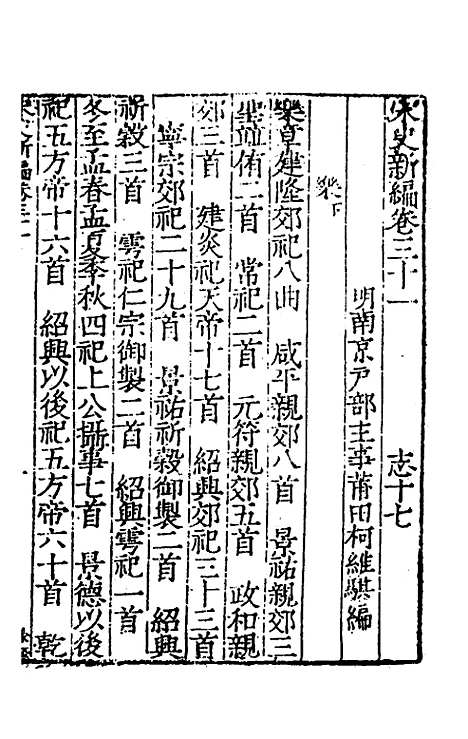 宋史新編卷三十一　　志十七
明南京戶部主事莆田柯維騏編
樂下
樂章建隆郊祀八曲　咸平親郊八首　景祐親郊三
聖並侑二首　常祀二首　元符親郊五首　政和親
郊三首　建炎祀天帝十七首　紹興郊祀三十三首
寧宗郊祀二十九首　景祐祈穀御製二首　紹興
祈穀三首　雩祀仁宗御製二首　紹興雩祀一首
冬至孟春孟夏季秋四祀上公攝事七首　景德以後
祀五方帝十六首　紹興以後祀五方帝六十首　乾